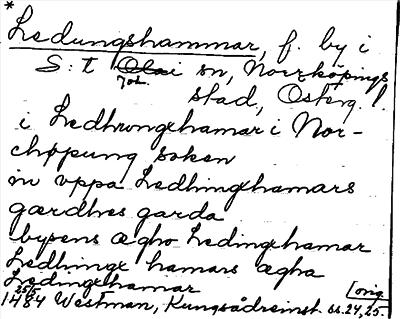 *
Ledungshammar, f. by i
S:t Olai sn, Norrköpings
Joh.
stad, Österg. l.
i Ledhrungxhamar i Nor-
chøpung soken
in vppa Ledhingxhamars
gærdhes garda
bysens ægho Ledingxhamar
Ledhingx hamars ægha
Ledingxhamar
25/5 orig.
1484 Westman, Kungsådreinst. ss. 24, 25.